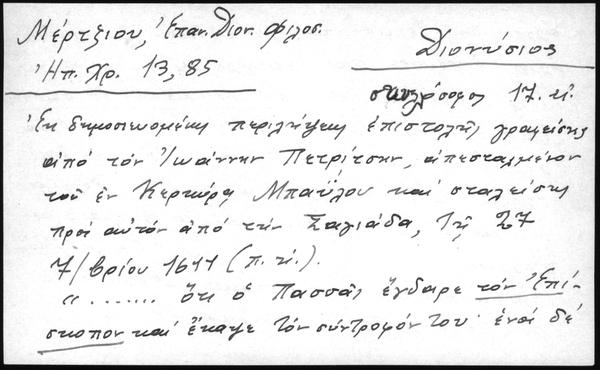 Μέρτζιου, Ἐπαν. Διον. Φιλοσ.
Διονύσιος
Ἠπ. Χρ. 13, 85
σκυλόσοφος 17. αἰ.
Ἐκ δημοσιευομένης περιλήψεως ἐπιστολῆς γραφείσης
ἀπό τόν Ἰωάννην Πετρίτσην, ἀπεσταλμένον
τοῦ ἐν Κερκύρᾳ Μπαΐλου καί σταλείσης
πρός αὐτόν ἀπό τήν Σαγιάδα, τῇ 27
7/βρίου 1611 (π.η.).
"....... ὅτι ὁ Πασσᾶς ἔγδαρε τόν Ἐπί-
σκοπον καί ἔκαψε τόν σύντροφόν του· ἑνός δέ